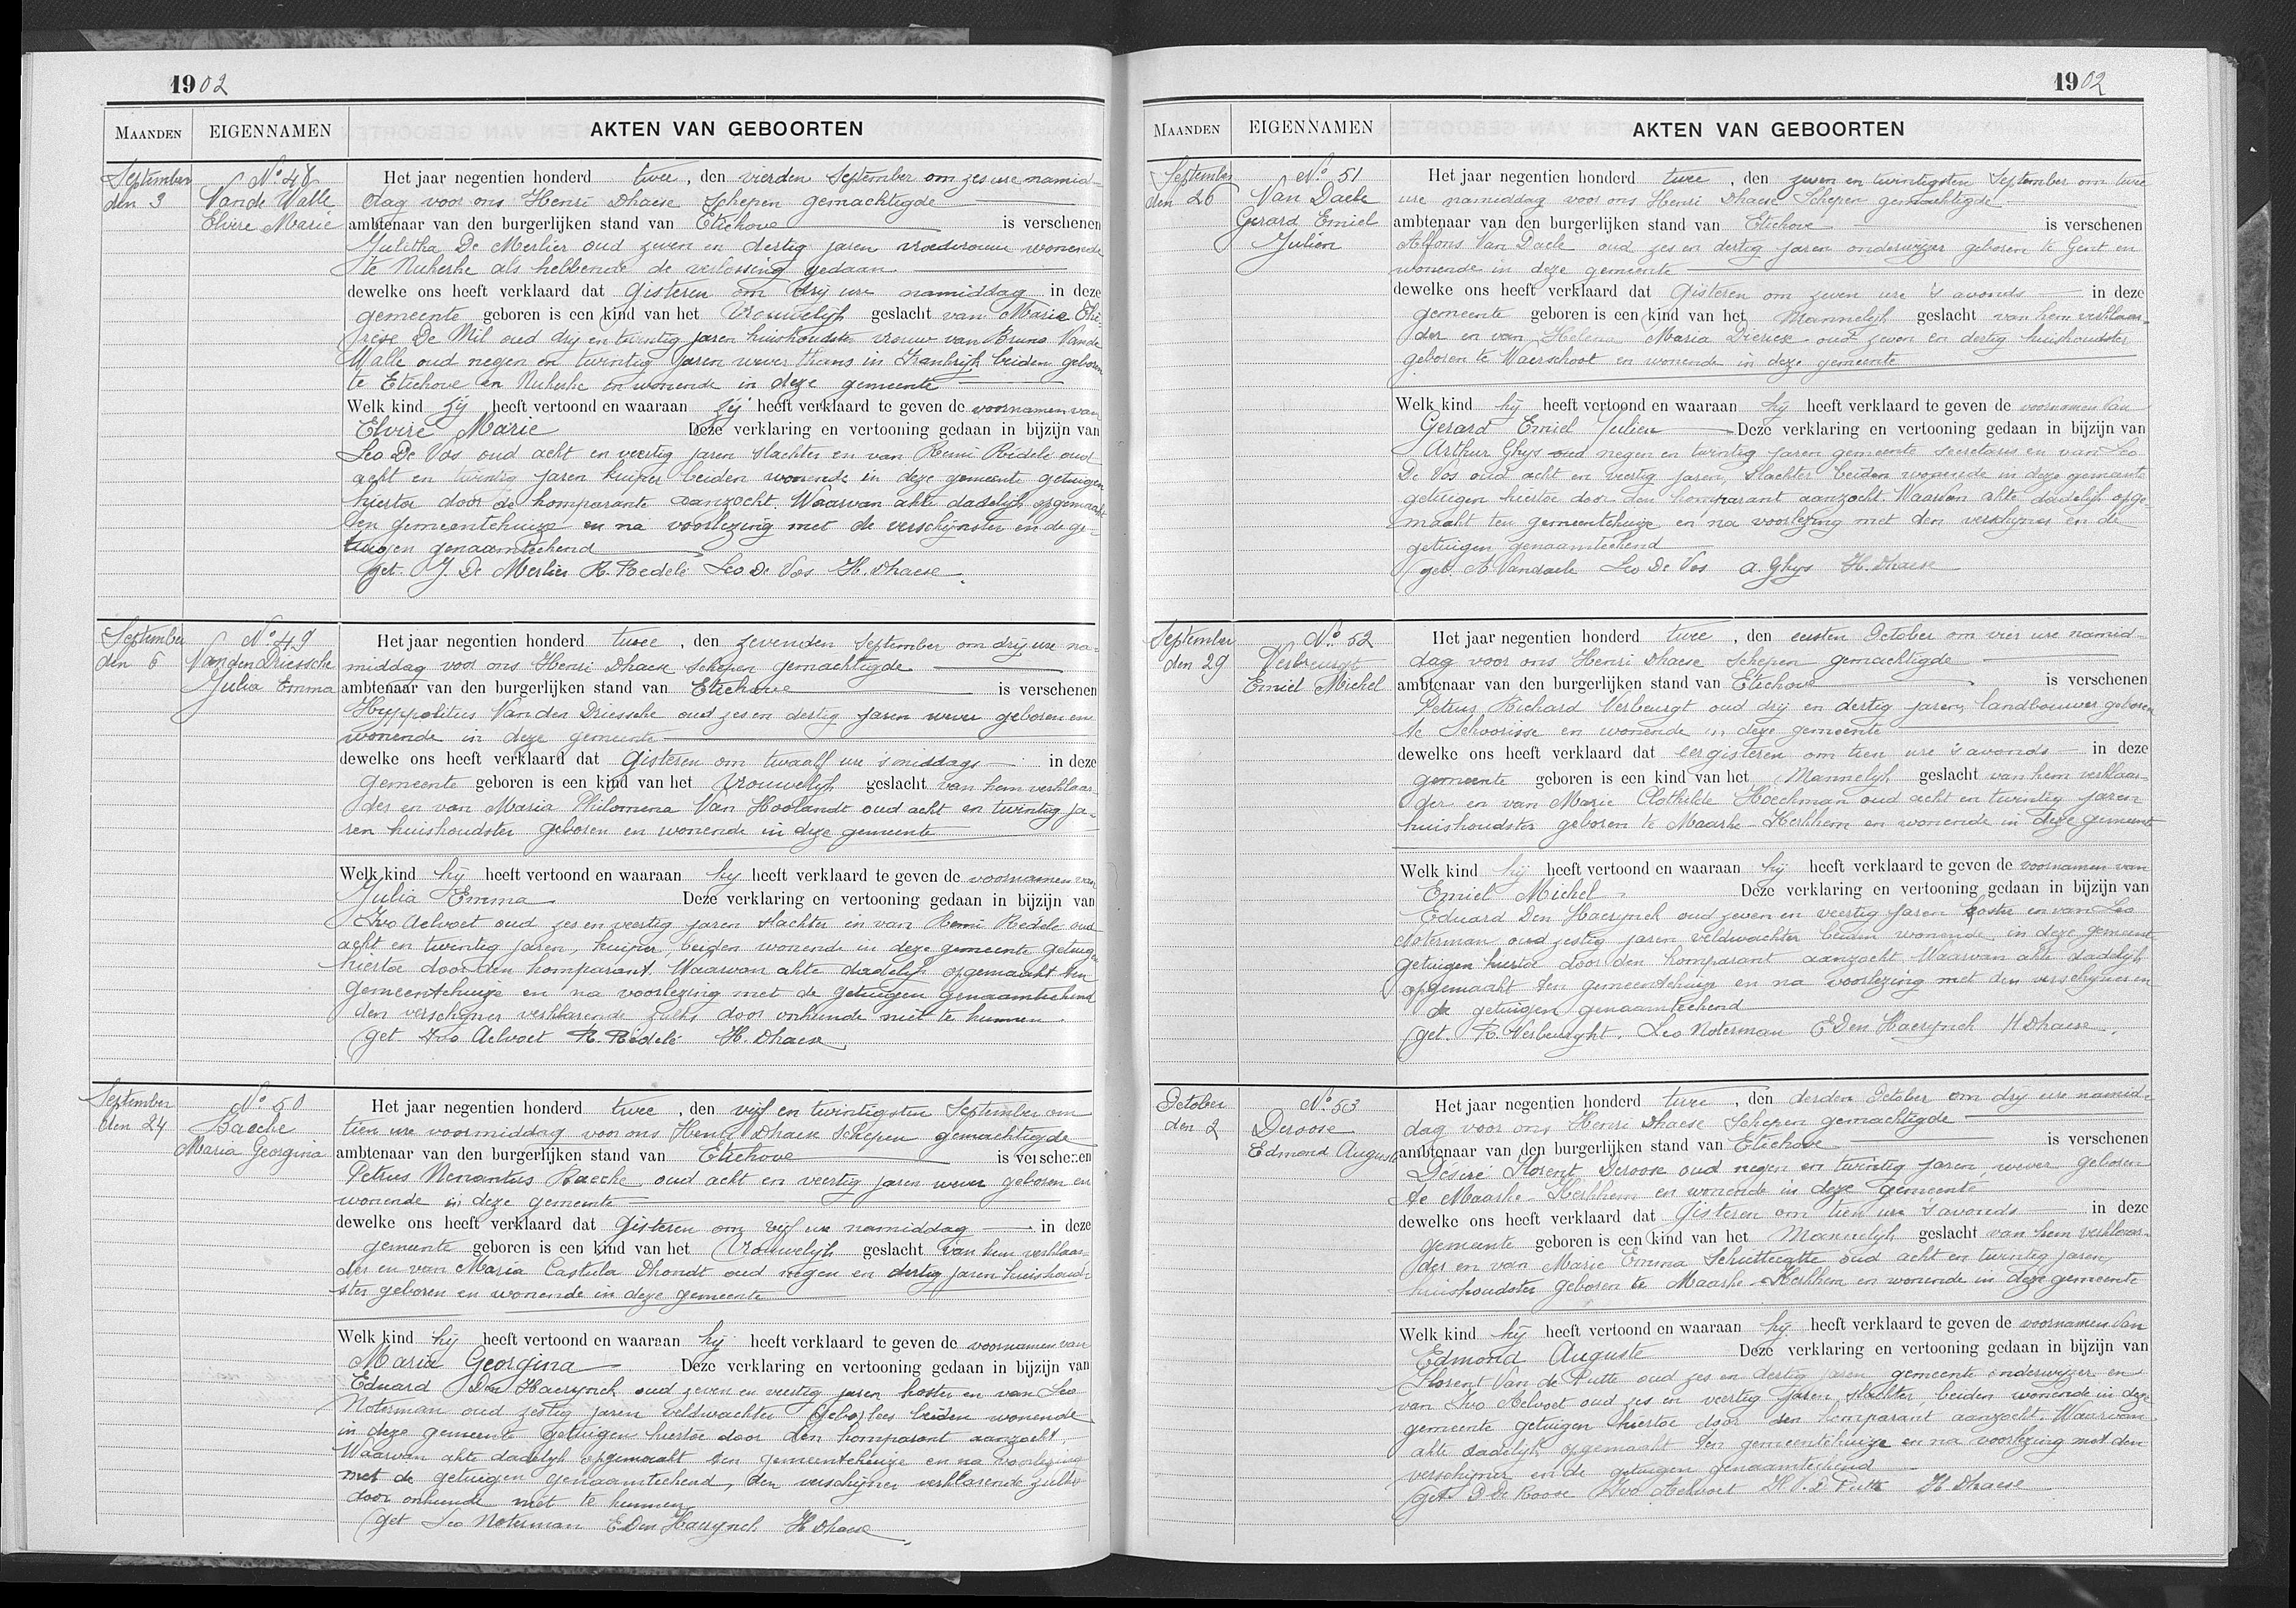 1902
MAANDEN EIGENNAMEN AKTEN VAN GEBOORTEN
September
den 3
No 48
Van de Walle
Elvire Marie
Het jaar negentien honderd twee, den vierden September om zes ure namid-
dag voor ons Henri Dhaese Schepen gemachtigde
ambtenaar van den burgerlijken stand van Etichove is verschenen
Julitha De Merlier oud zeven en dertig jaren vroedvrouw wonende
te Nukerke als hebbende de verlossing gedaan
dewelke ons heeft verklaard dat gisteren om drij ure namiddag in deze
gemeente geboren is een kind van het Vrouwelijk geslacht van Marie Thé-
rèse De Mil oud drij en twintig jaren huishoudster vrouw van Bruno Van de
Walle oud negen en twintig jaren wever thans in Frankrijk beiden geboren
te Etichove en Nukerke en wonende in deze gemeente
Welk kind zij heeft vertoond en waaraan zij heeft verklaard te geven de voornamen van
Elvire Marie Deze verklaring en vertooning gedaan in bijzijn van
Leo De Vos oud acht en veertig jaren slachter en van Remi Redelé oud
acht en twintig jaren kuiper beiden wonende in deze gemeente getuigen
hiertoe door de komparante aanzocht. Waarvan akte dadelijk opgemaakt
ten gemeentehuize en na voorlezing met de verschijnster en de ge-
tuigen genaamteekend
get. J. De Merlier R. Redelé Leo De Vos H. Dhaese.
September
den 6
No 49
Van den Driessche
Julia Emma
Het jaar negentien honderd twee, den zevenden September om drij ure na-
middag voor ons Henri Dhaese Schepen gemachtigde
ambtenaar van den burgerlijken stand van Etichove is verschenen
Hyppolitus Van den Driessche oud zes en dertig jaren wever geboren en
wonende in deze gemeente
dewelke ons heeft verklaard dat gisteren om twaalf ure 's middags in deze
gemeente geboren is een kind van het Vrouwelijk geslacht van hem verklaar-
der en van Maria Philomena Van Hoolandt oud acht en twintig ja-
ren huishoudster geboren en wonende in deze gemeente
Welk kind hij heeft vertoond en waaraan hij heeft verklaard te geven de voornamen van
Julia Emma Deze verklaring en vertooning gedaan in bijzijn van
Ivo Aelvoet oud zes en veertig jaren slachter en van Remi Redelé oud
acht en twintig jaren, kuiper, beiden wonende in deze gemeente getuigen
hiertoe door den komparant. Waarvan akte dadelijk opgemaakt ten
gemeentehuize en na voorlezing met de getuigen genaamteekend
den verschijner verklarende zulks door onkunde niet te kunnen.
get. Ivo Aelvoet R. Redelé H. Dhaese
September
den 24
No 50
Baeche
Maria Georgina
Het jaar negentien honderd twee, den vijf en twintigsten September om
tien ure voormiddag voor ons Henri Dhaese Schepen gemachtigde
ambtenaar van den burgerlijken stand van Etichove is verschenen
Petrus Venantius Baeche oud acht en veertig jaren wever geboren en
wonende in deze gemeente
dewelke ons heeft verklaard dat gisteren om vijf ure namiddag in deze
gemeente geboren is een kind van het Vrouwelijk geslacht van hem verklaar-
der en van Maria Castula Dhondt oud negen en dertig jaren huishoud-
ster geboren en wonende in deze gemeente
Welk kind hij heeft vertoond en waaraan hij heeft verklaard te geven de voornamen van
Maria Georgina Deze verklaring en vertooning gedaan in bijzijn van
Eduard Den Haerynck oud zeven en veertig jaren koster en van Leo
Noterman oud zestig jaren veldwachter beiden wonende
in deze gemeente getuigen hiertoe door den komparant aanzocht.
Waarvan akte dadelijk opgemaakt ten gemeentehuize en na voorlezing
met de getuigen genaamteekend, den verschijner verklarende zulks
door onkunde niet te kunnen
get Leo Noterman E Den Haerynck H Dhaese
1902
MAANDEN EIGENNAMEN AKTEN VAN GEBOORTEN
September
den 26
No 51
Van Daele
Gerard Emiel
Julien
Het jaar negentien honderd twee, den zeven en twintigsten September om twee
ure namiddag voor ons Henri Dhaese Schepen gemachtigde
ambtenaar van den burgerlijken stand van Etichove is verschenen
Alfons Van Daele oud zes en dertig jaren onderwijzer geboren te Gent en
wonende in deze gemeente
dewelke ons heeft verklaard dat gisteren om zeven ure 's avonds in deze
gemeente geboren is een kind van het Mannelijk geslacht van hem verklaar-
der en van Helena Maria Dierick oud zeven en dertig huishoudster
geboren te Waerschoot en wonende in deze gemeente
Welk kind hij heeft vertoond en waaraan hij heeft verklaard te geven de voornamen van
Gerard Emiel Julien Deze verklaring en vertooning gedaan in bijzijn van
Arthur Ghys oud negen en twintig jaren gemeente secretaris en van Leo
De Vos oud acht en veertig jaren, Slachter beiden wonende in deze gemeente
getuigen hiertoe door den komparant aanzocht. Waarvan akte dadelijk opge-
maakt ten gemeentehuize en na voorlezing met den verschijner en de
getuigen genaamteekend
get. A Vandaele Leo De Vos A. Ghys H. Dhaese
September
den 29
No 52
Verbeurgt
Emiel Michel
Het jaar negentien honderd twee, den eersten October om vier ure namid-
dag voor ons Henri Dhaese Schepen gemachtigde
ambtenaar van den burgerlijken stand van Etichove is verschenen
Petrus Richard Verbeurgt oud drij en dertig jaren, landbouwer geboren
te Schoorisse en wonende in deze gemeente
dewelke ons heeft verklaard dat eergisteren om tien ure 's avonds in deze
gemeente geboren is een kind van het Mannelijk geslacht van hem verklaar-
der en van Marie Clothilde Hoeckman oud acht en twintig jaren
huishoudster geboren te Maarke Kerkhem en wonende in deze gemeente
Welk kind hij heeft vertoond en waaraan hij heeft verklaard te geven de voornamen van
Emiel Michel Deze verklaring en vertooning gedaan in bijzijn van
Eduard Den Haerynck oud zeven en veertig jaren koster en van Leo
Noterman oud zestig jaren veldwachter beiden wonende in deze gemeente
getuigen hiertoe door den komparant aanzocht Waarvan akte dadelijk
opgemaakt ten gemeentehuize en na voorlezing met den verschijner en
de getuigen genaamteekend
get. R. Verbeurght. Leo Noterman E Den Haerynck H Dhaese.
October
den 2
No 53
Deroose
Edmond Auguste
Het jaar negentien honderd twee, den derden October om drij ure namid-
dag voor ons Henri Dhaese Schepen gemachtigde
ambtenaar van den burgerlijken stand van Etichove is verschenen
Desiré Florent Deroose oud negen en twintig jaren, wever geboren
te Maarke-Kerkhem en wonende in deze gemeente
dewelke ons heeft verklaard dat gisteren om tien ure 's avonds in deze
gemeente geboren is een kind van het Mannelijk geslacht van hem verklaar-
der en van Marie Emma Schietteegatte oud acht en twintig jaren,
huishoudster geboren te Maarke-Kerkhem en wonende in deze gemeente
Welk kind hij heeft vertoond en waaraan hij heeft verklaard te geven de voornamen van
Edmond Auguste Deze verklaring en vertooning gedaan in bijzijn van
Florent Van de Putte oud zes en dertig jaren gemeente onderwijzer en
van Ivo Aelvoet oud zes en veertig jaren slachter, beiden wonende in deze
gemeente getuigen hiertoe door den komparant aanzocht. Waarvan
akte dadelijk opgemaakt ten gemeentehuize en na voorlezing met den
verschijner en de getuigen genaamteekend
get. D De Roose Ivo Aelvoet H Dhaese